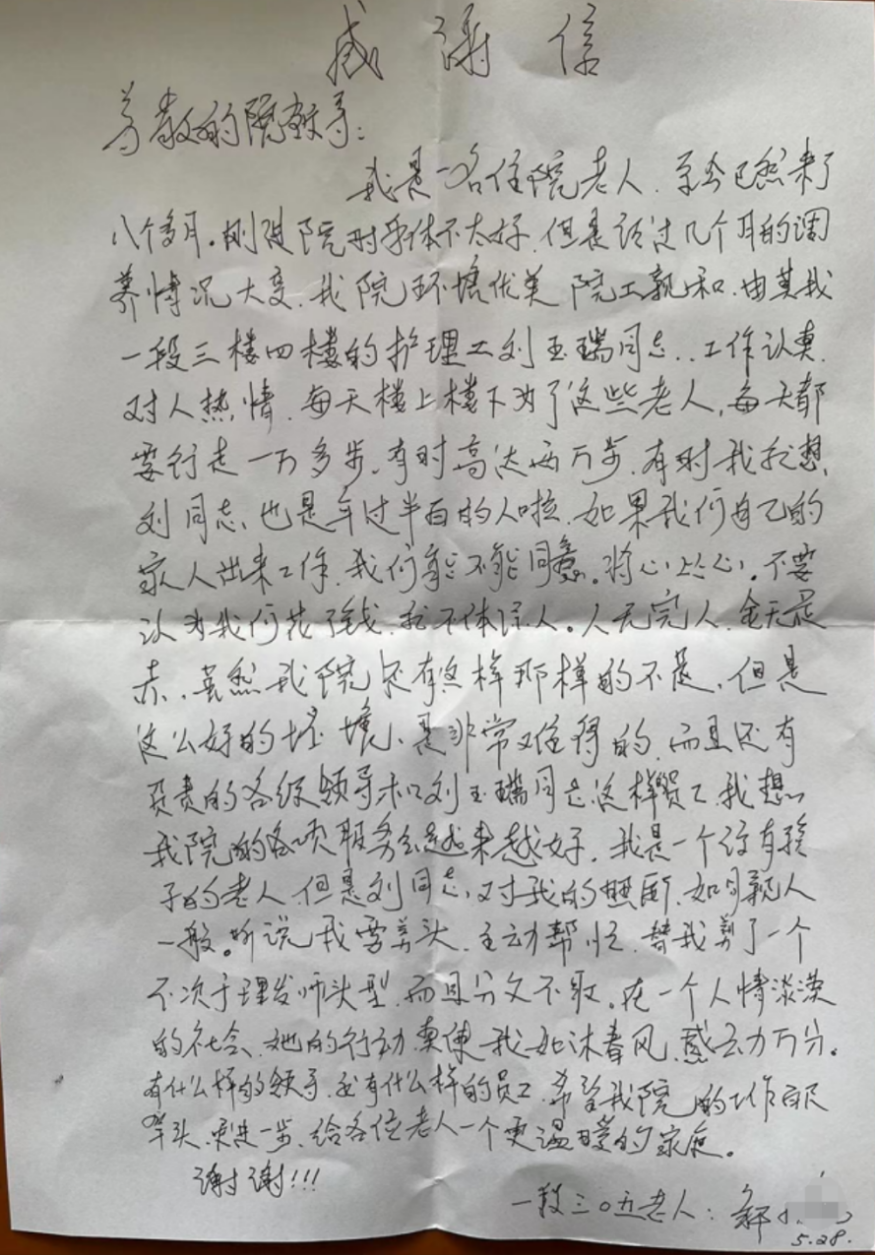 感谢信
尊敬的院领导：
我是一名住院老人，至今已然来了
八个多月。刚进院时身体不太好，但是经过几个月的调
养情况大变，我院环境优美院工亲和，由其我
一段三楼四楼的护理工刘玉瑞同志，工作认真，
对人热情，每天楼上楼下为了这些老人，每天都
要行走一万多步，有时高达两万步，有时我就想，
刘同志，也是年过半百的人啦，如果我们自己的
家人出来工作，我们能不能同意。将心比心，不要
认为我们花了钱，就不体谅人。人无完人，金无足
赤，虽然我院还有这样那样的不足，但是
这么好的环境、是非常难得的，而且还有
负责的各级领导和刘玉瑞同志这样员工，我想，
我院的各项服务会越来越好，我是一个没有孩
子的老人，但是刘同志，对我的照顾，如同亲人
一般。听说我要剪头，主动帮忙，替我剪了一个
不次于理发师头型，而且分文不取。在一个人情淡漠
的社会、她的行动，真使我如沐春风，感动万分。
有什么样的领导，就有什么样的员工，希望我院的工作百尺
竿头，更进一步，给各位老人一个更温暖的家庭。
谢谢!!!
一段三〇五老人：
5.28.